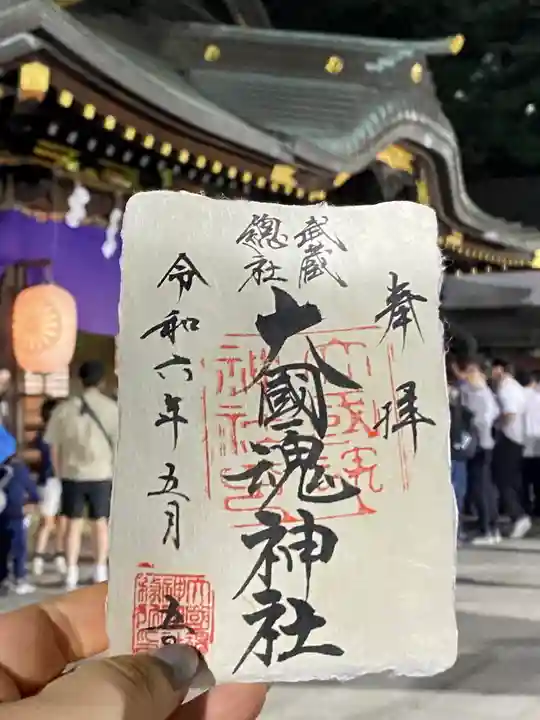 奉拝
武蔵
總社
大國魂神社
令和六年五月
五日